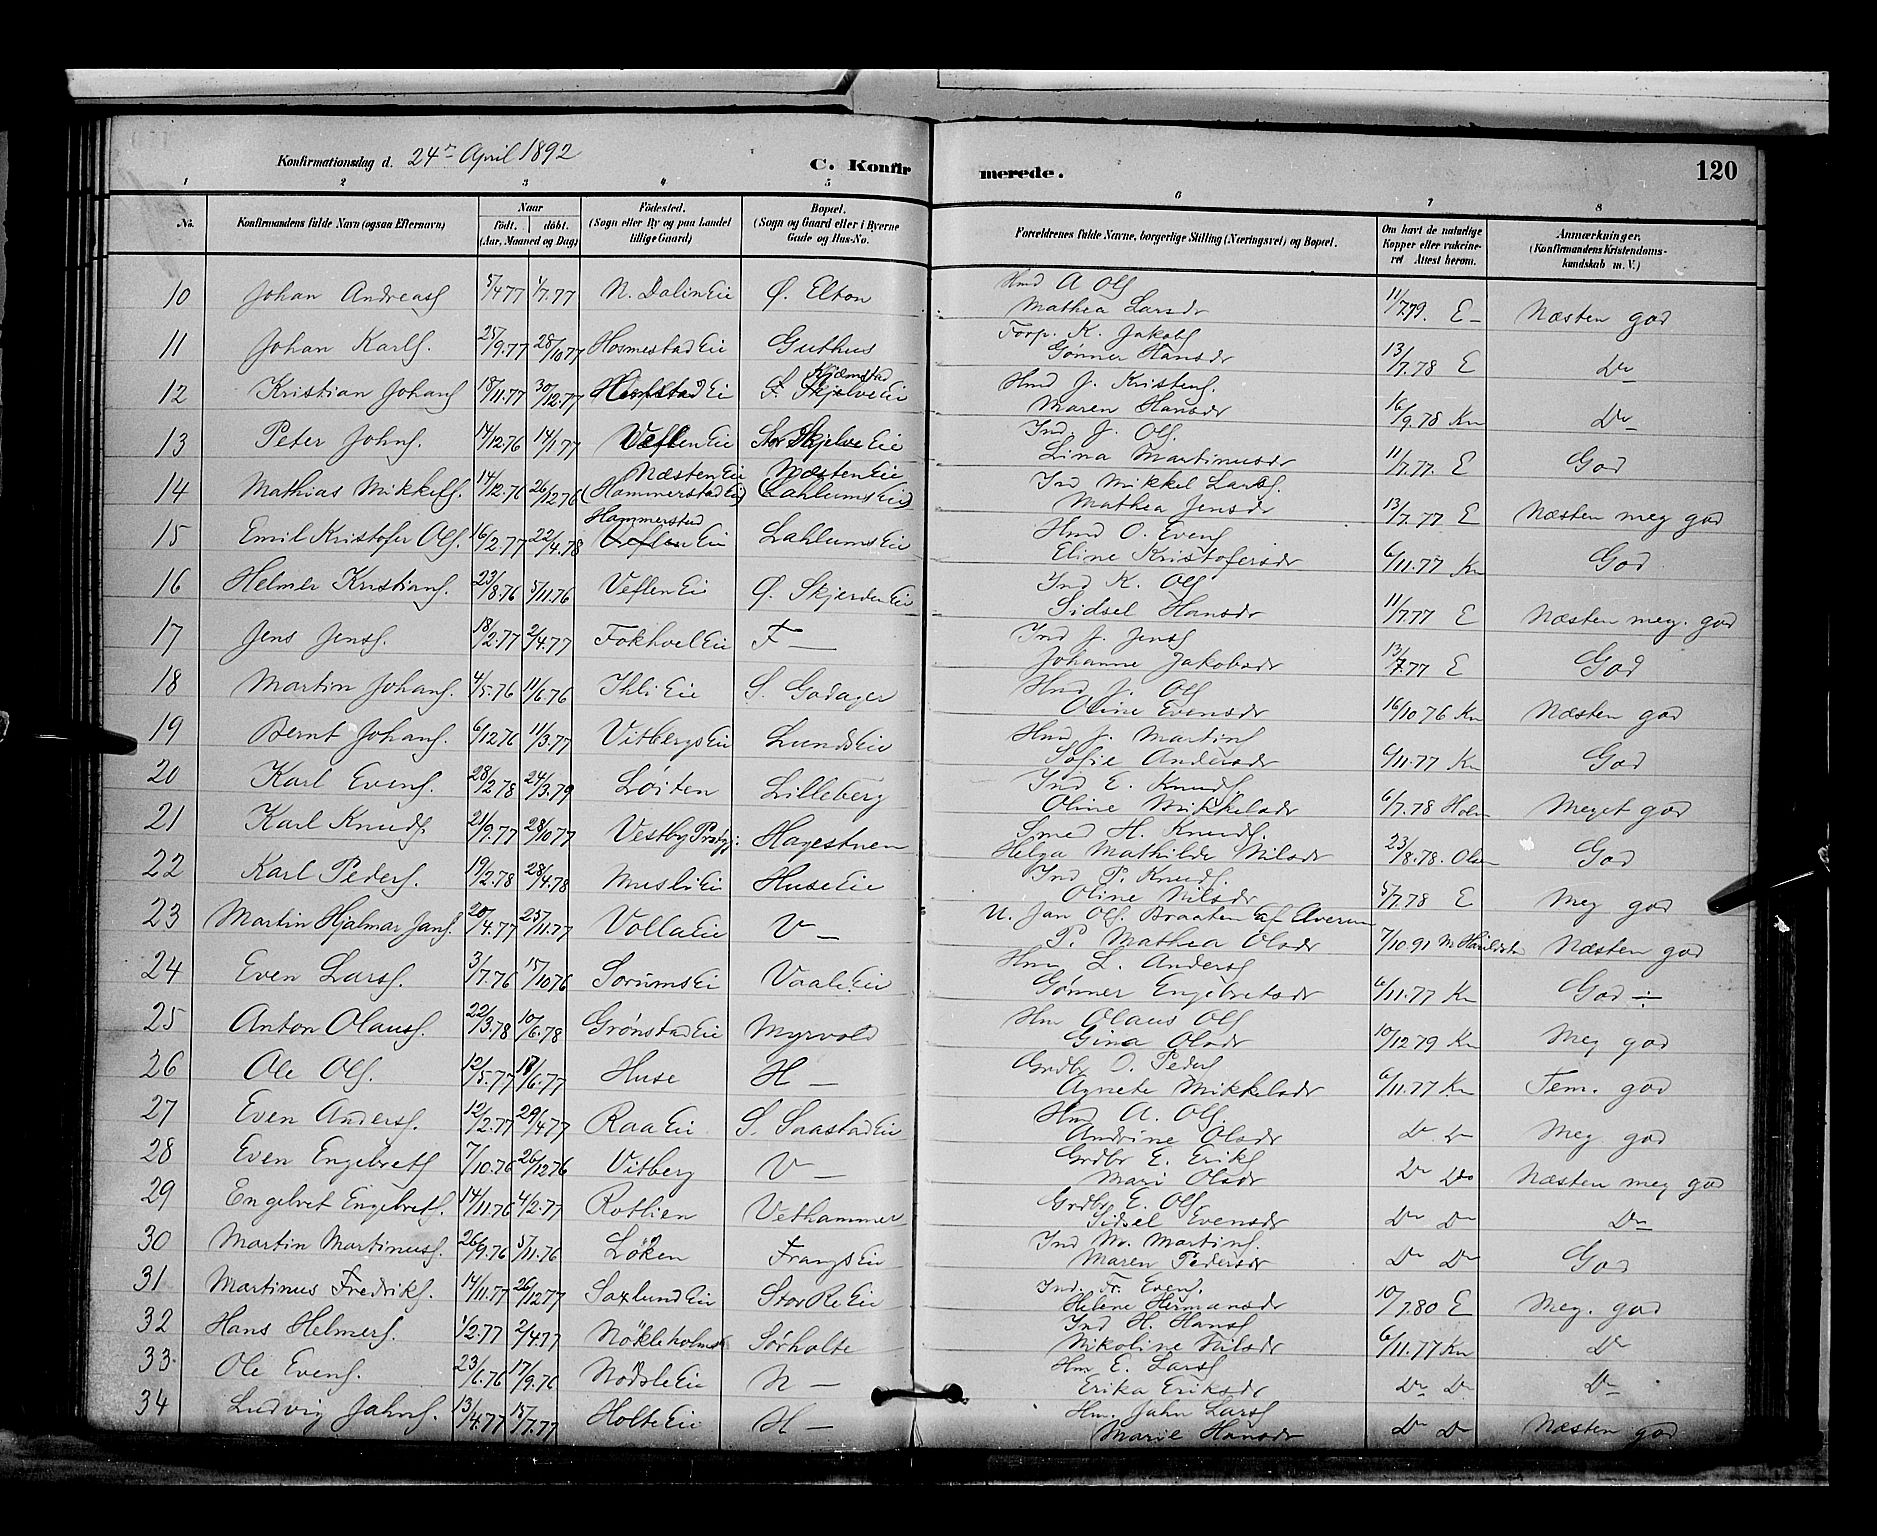 Konfirmationsdag d. 24de April 1892
C. Konfirmerede.
120
1 2 3 4 5 6 7 8
No. Konfirmandens fulde Navn (ogsaa Efternavn) Naar født. døbt. (Aar, Maaned og Dag) Fødested. (Sogn eller By og paa Landet tillige Gaard) Bopæl. (Sogn og Gaard eller i Byerne Gade og Hus-No. Forældrenes fulde Navne, borgerlige Stilling (Næringsvei) og Bopæl. Om havt de naturlige Kopper eller vakcineret Attest herom. Anmærkninger. (Konfirmandens Kristendomskundskab m. V.)
10 Johan Andreas 5/4 77 1/7.77 N. Dalin Eie Ø. Elton Hmd A Ols Mathea Larsdr 11/7.79. E Næsten god
11 Johan Karls. 25/9.77 28/10 77 Hosmestad Eie Guthus Forp. K. Jakobs Gønner Hansdr 13/7.78 E Do
12 Kristian Johans 18/11.77 30/12.77 Eie Kjæmstad Hmd J. Kristens. Maren Hansdr 16/9.78 Kn Do
13 Peter Johns. 14/12.76 14/1.77 Veflen Eie Stor Skjelve Eie Ind. J. Ols. Lina Martinusdr 11/7.77. E God
14 Mathias Mikkels. 14/12.76 26/12 76 Næsten Eie (Hammerstad Eie) Næsten Eie (Lahlums Eie) Ind Mikkel Lars. Mathea Jensdr 13/7.77 E Næsten meg god
15 Emil Kristofer Ols. 16/2.77 22/4.78 Hammerstad Veflen Eie Lahlums Eie Hmd O. Evens Eline Kristofersdr 6/11.77 Kn God
16 Helmer Kristians. 23/8.76 5/11.76 Veflen Eie Ø. Skjerden Eie Ind K. Ols Sidsel Hansdr 11/7.77 E Næsten meg. god
17 Jens Jens 18/2.77 2/4.77 Fokhol Eie F — Ind J. Jens Johanne Jakobsdr 13/7.77 E God
18 Martin Johans. 4/5.76 11/6.76 Ihli Eie S. Godager Hmd J. Ols Oline Evensdr 16/10 76 Kn Næsten god
19 Bernt Johans. 6/12 76 11/3.77 Vitbergs Eie Lunds Eie Hmd J. Martins Sofie Andersdr 6/11.77 Kn God
20 Karl Evens. 28/2.78 24/3.79 Løiten Lilleberg Ind E. Knuds Oline Mikkelsdr 6/7.78 Holm Meget god
21 Karl Knuds 21/9.77 28/10.77 Vestby Prstgj: Hagestuen Smed H. Knuds. Helga Mathilde Nilsdr 23/8.78. Olsen God
22 Karl Peders. 19/2.78 28/4.78 Musli Eie Huse Eie Ind P. Knuds. Oline Nilsdr 5/7.78 E Meg god
23 Martin Hjalmar Jans. 20/4.77 25/11.77 Volla Eie V — U. Jan Ols. Braaten Eie af Elverum P. Mathea Olsdr 7/10 91 Næsten god
24 Even Lars. 3/7.76 15/10 76 Sørums Eie Vaale Eie Hm L. Anders Gønner Engebretsdr 6/11.77 Kn God ÷
25 Anton Olaus. 22/3.78 10/6.78 Grønstad Eie Myrvold Hm Olaus Ols Gina Olsdr 10/12 79 Kn Meg god
26 Ole Ols. 12/5.77 17/6.77 Huse H — Grdbr O. Peders Agnete Mikkelsdr 6/11.77 Kn Tem. god
27 Even Anders. 12/2.77 29/4.77 Raa Eie S. Saastad Eie Hmd A. Ols Andrine Olsdr Do Do Meg. god
28 Even Engebrets 7/10.76 26/12 76 Vitberg V — Grdbr E. Eriks Mari Olsdr Do Do Næsten meg god
29 Engebret Engebrets. 14/11.76 4/2.77 Rotlien Vethammer Grdbr E. Ols Sidsel Evensdr Do Do Do
30 Martin Martinus. 26/9.76 5/11.76 Løken Frangs Eie Ind M. Martins. Maren Pedersdr Do Do God
31 Martinus Fredriks. 14/11.77 26/12 77 Saxlund Eie Stor Re Eie Ind. Fr. Evens. Helene Hermansdr 10/7.80 E Meg. god
32 Hans Helmers. 1/2.77 2/4.77 Nökleholms Sørholte Ind H. Hans Nikoline Nilsdr 6/11.77 Kn Do
33 Ole Evens. 23/6.76 17/9.76 Nodsle Eie N — Hm E. Lars Erika Eriksdr Do Do Do
34 Ludvig Johns. 13/4.77 15/7.77 Holte Eie H — Hm. John Lars Marie Hansdr Do Do Næsten god